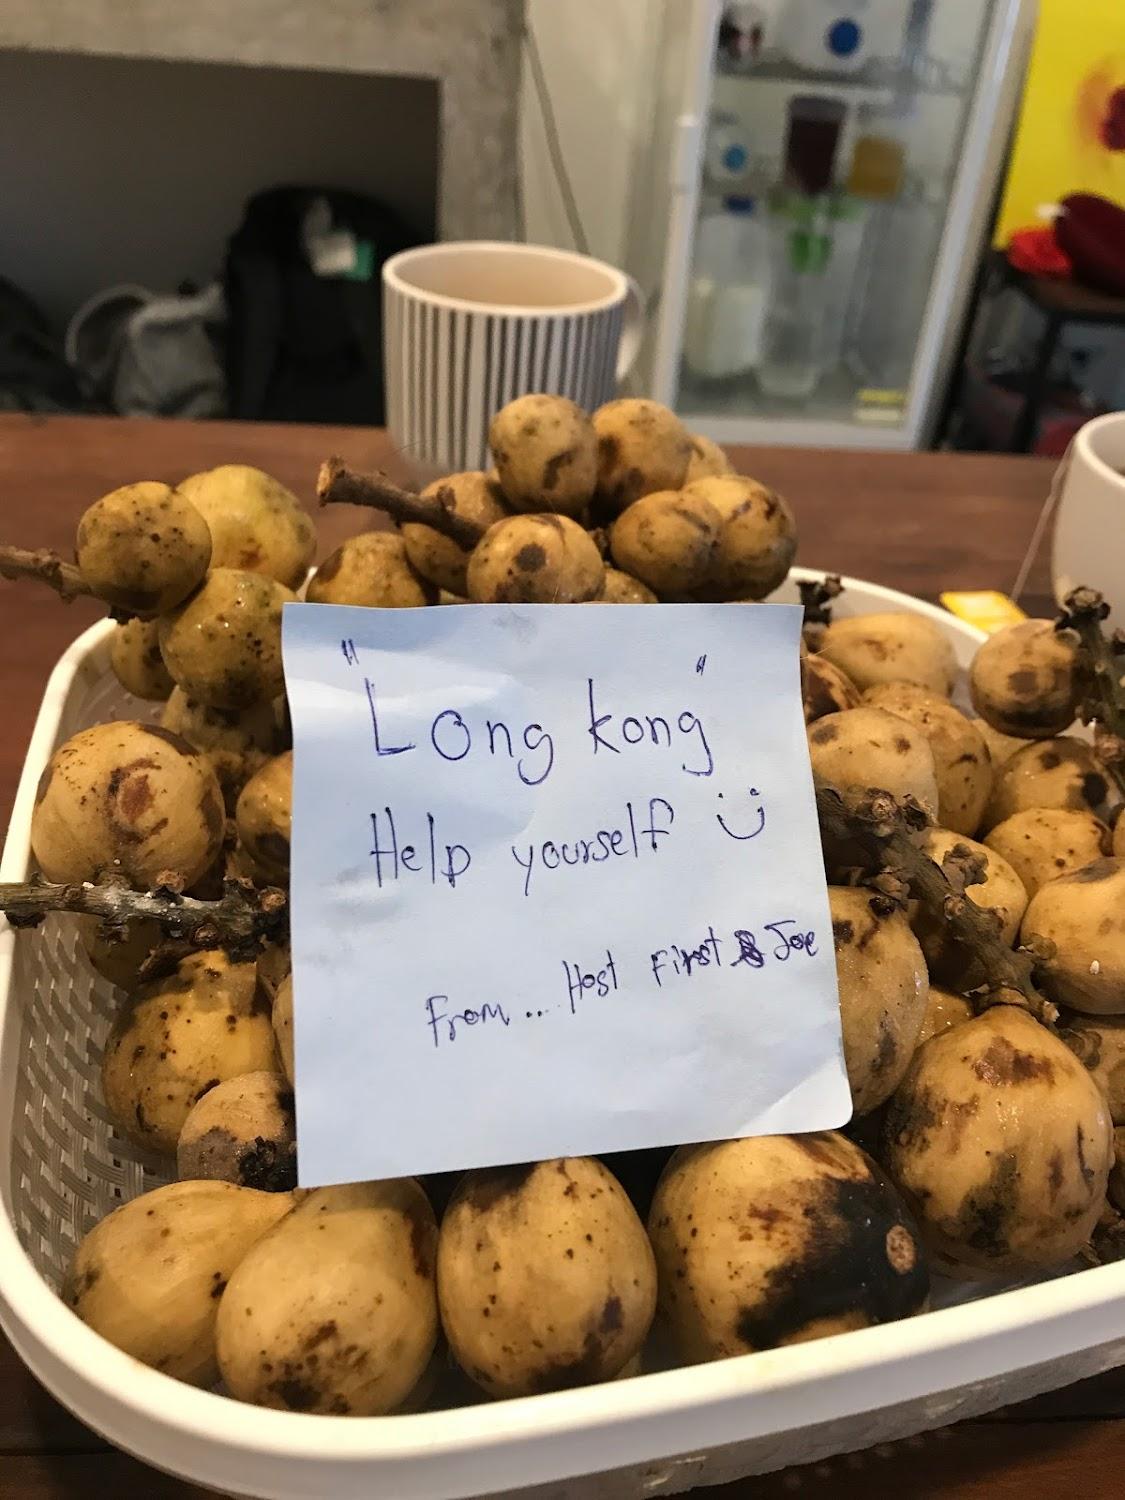 "Long kong"
Help yourself :)
From... Host First & Joe